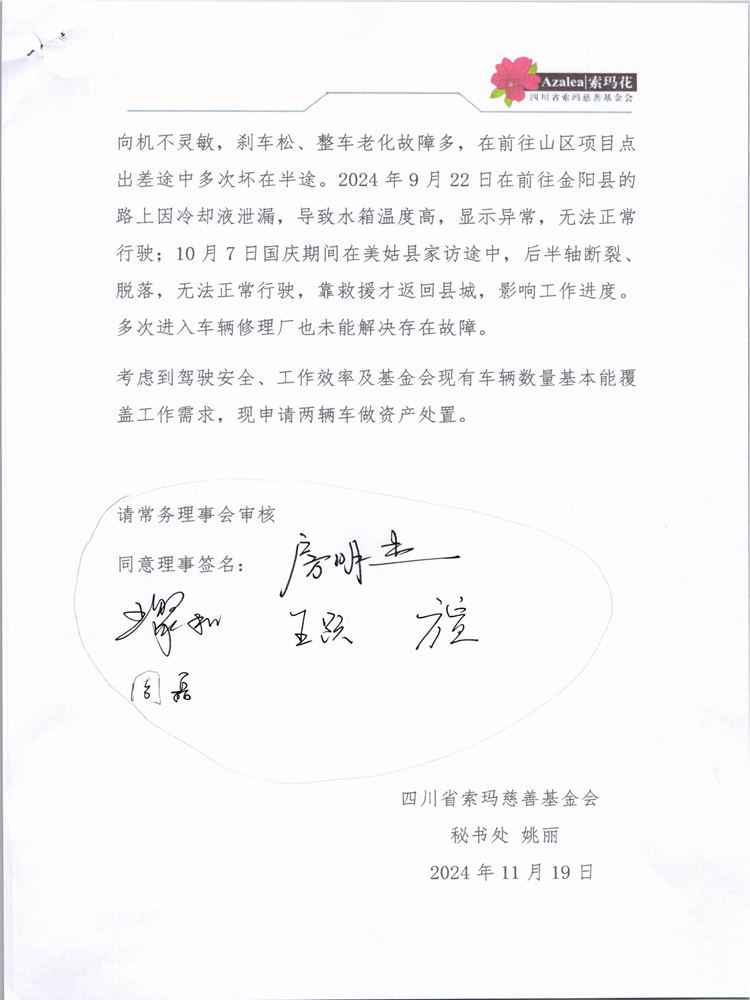 Azalea|索玛花
四川省索玛慈善基金会
向机不灵敏，刹车松、整车老化故障多，在前往山区项目点
出差途中多次坏在半途。2024 年 9 月 22 日在前往金阳县的
路上因冷却液泄漏，导致水箱温度高，显示异常，无法正常
行驶；10 月 7 日国庆期间在美姑县家访途中，后半轴断裂、
脱落，无法正常行驶，靠救援才返回县城，影响工作进度。
多次进入车辆修理厂也未能解决存在故障。
考虑到驾驶安全、工作效率及基金会现有车辆数量基本能覆
盖工作需求，现申请两辆车做资产处置。
请常务理事会审核
同意理事签名：
房明杰
王跃 方萱
周磊
四川省索玛慈善基金会
秘书处 姚丽
2024 年 11 月 19 日